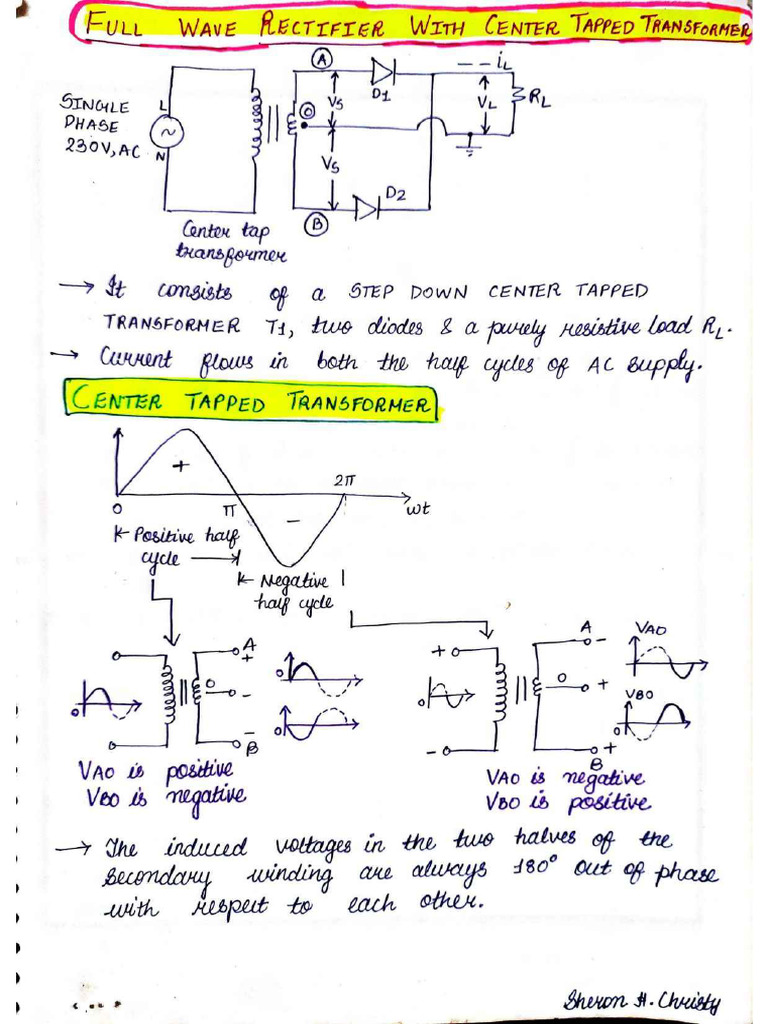 FULL WAVE RECTIFIER WITH CENTER TAPPED TRANSFORMER
A
iL
D1
VS
VL
RL
SINGLE
PHASE
230V, AC
L
N
O
VS
D2
B
Center tap
transformer
→ It consists of a STEP DOWN CENTER TAPPED
TRANSFORMER T1, two diodes & a purely resistive load RL.
→ Current flows in both the half cycles of AC supply.
CENTER TAPPED TRANSFORMER
+
2π
0
π
−
wt
Positive half
cycle
Negative
half cycle
A
+
O
−
−
B
0
0
0
VAO is positive
VBO is negative
A
−
VAO
+
O
+
VBO
0
0
−
+
B
VAO is negative
VBO is positive
→ The induced voltages in the two halves of the
secondary winding are always 180° out of phase
with respect to each other.
Sheron H. Christy